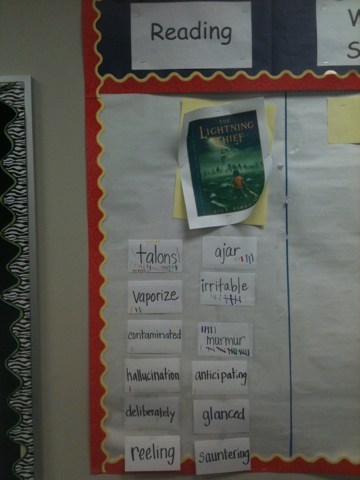 Reading
W
S
THE
LIGHTNING
THIEF
talons
ajar
vaporize
irritable
contaminated
murmur
hallucination
anticipating
deliberately
glanced
reeling
sauntering